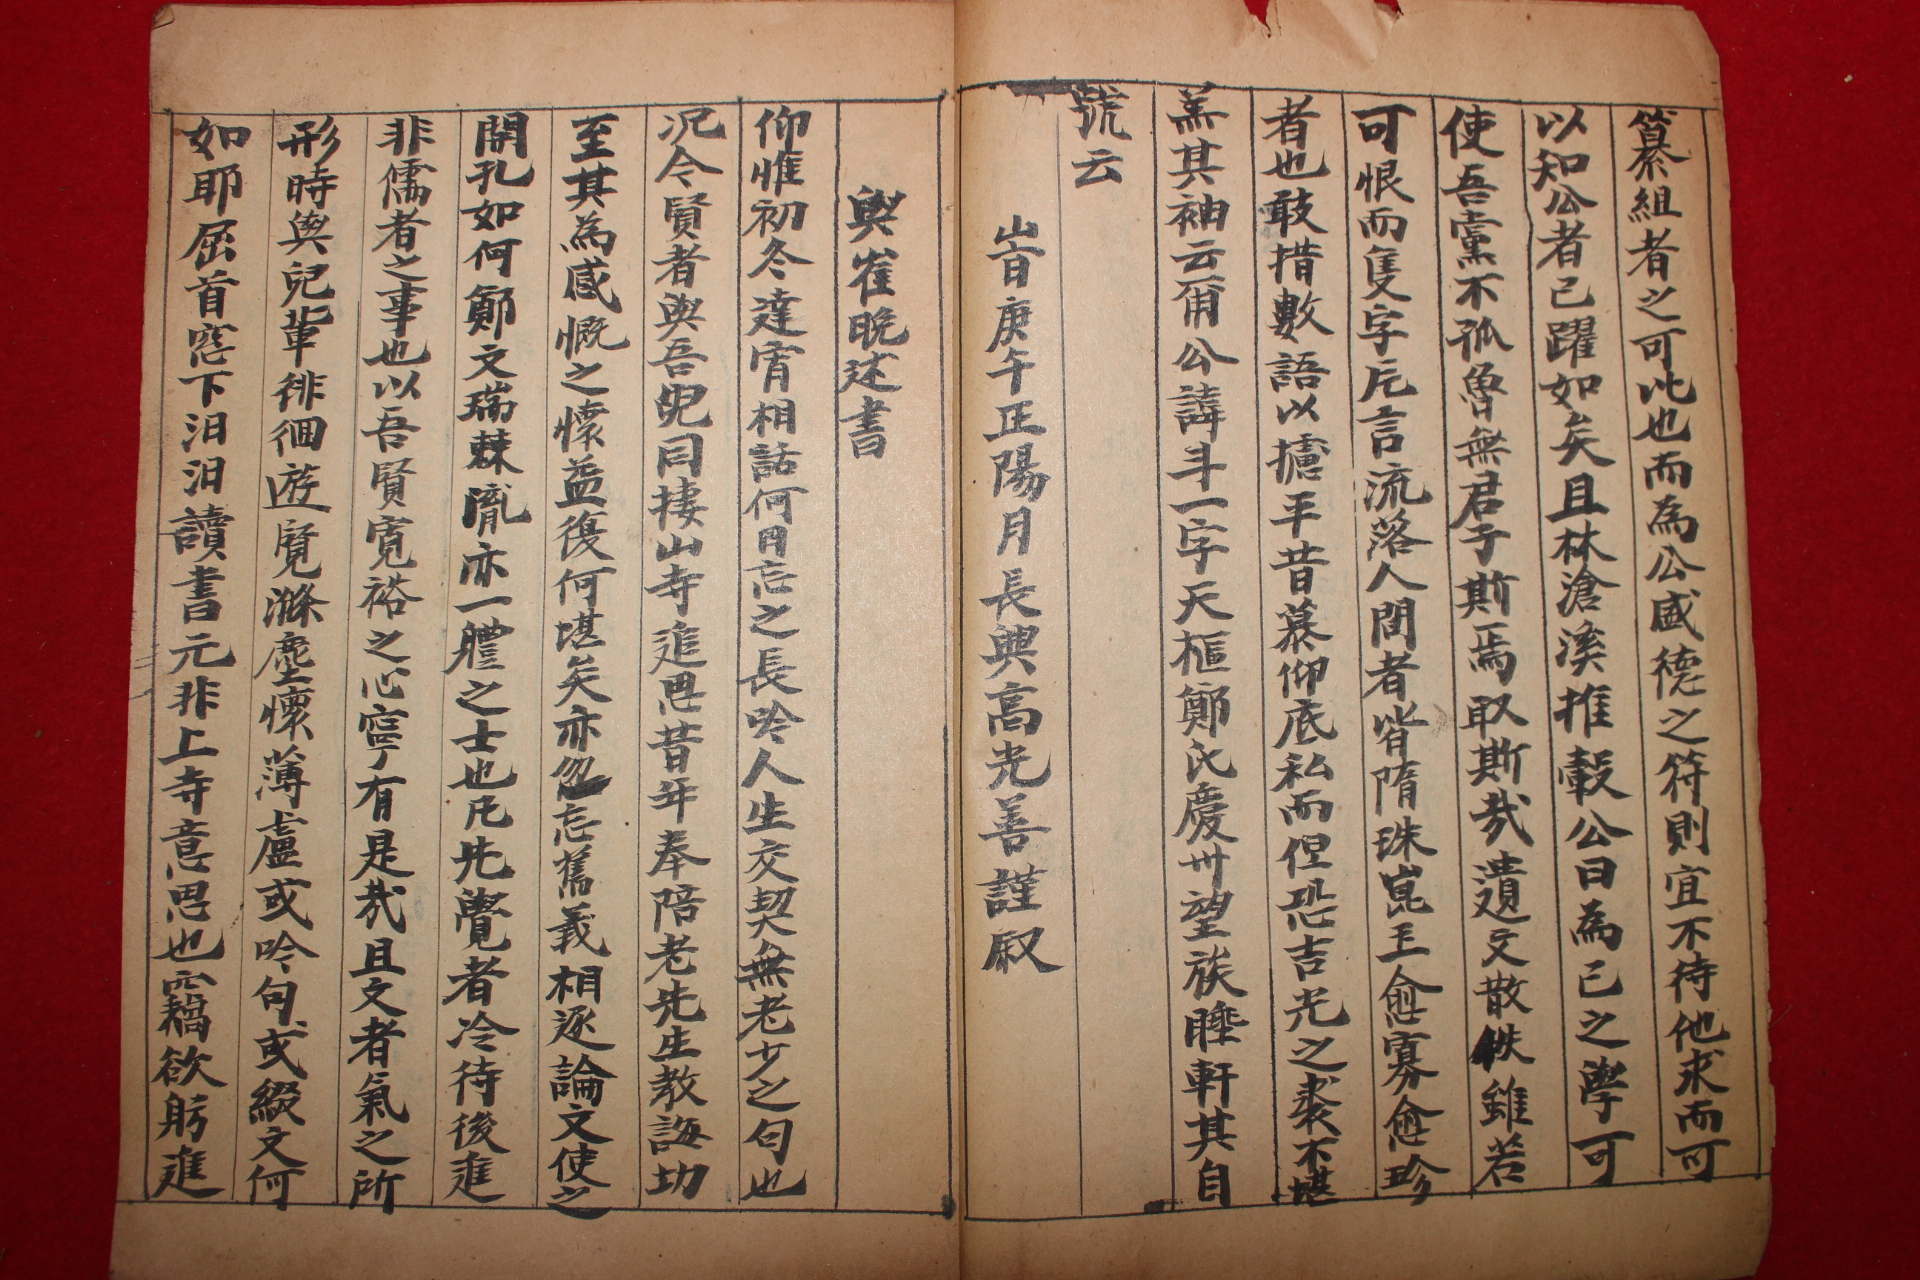 纂組者之可比也而為公盛德之符則宜不待他求而可
以知公者已躍如矣且林滄溪推轂公曰為己之學可
使吾黨不孤魯無君子斯焉取斯哉遺文散佚雖若
可恨而隻字片言流落人間者皆隋珠崑玉愈寡愈珍
者也敢措數語以攄平昔慕仰底私而但恐吉光之裘不堪
羔其袖云爾公諱斗一字天樞鄭氏慶州望族睡軒其自
號云
峕庚午正陽月長興高光善謹敍
與崔晚述書
仰惟初冬達宵相話何日忘之長吟人生交契無老少之句也
况今賢者與吾兒同棲山寺追思昔年奉陪老先生教誨功
至其為感慨之懷益復何堪矣亦忽忘舊義相逐論文使之
開孔如何鄭文瑞棘胤亦一體之士也凡此先覺者冷待後進
非儒者之事也以吾賢寬裕之心寧有是哉且文者氣之所
形時與兒輩徘徊遊覽滌塵懷薄盧或吟句或綴文何
如耶屈首窓下汩汩讀書元非上寺意思也竊欲躬進